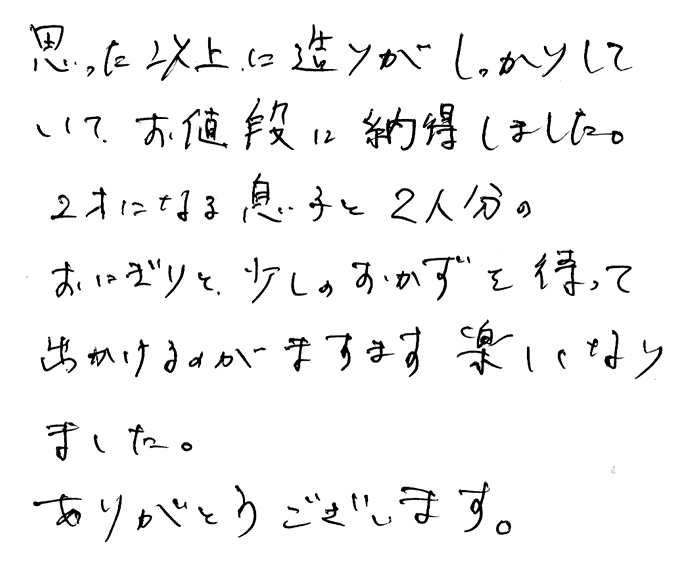 思った以上に造りがしっかりして
いて、お値段に納得しました。
2才になる息子と2人分の
おにぎりと、少しのおかずを持って
出かけるのがますます楽しくなり
ました。
ありがとうございます。